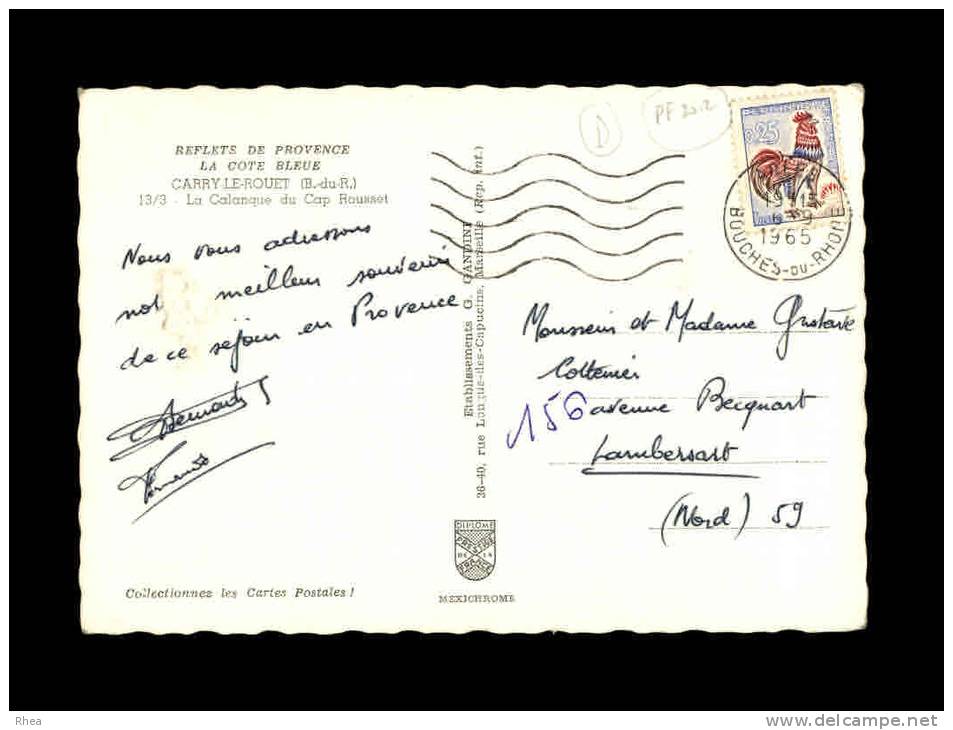 D
PF 2012
0,25
REFLETS DE PROVENCE
LA COTE BLEUE
CARRY-LE-ROUET (B.-du-R.)
13/3 - La Calanque du Cap Rousset
19 H15
1965
BOUCHES-DU-RHONE
Nous vous adressons
not meilleur souvenir
de ce séjour en Provence
Etablissements G. GANDINI
36-40, rue Longue-des-Capucins, Marseille (Rep. int.)
Monsieur et Madame Gustave
Cottenier
156 avenue Becquart
Lambersart
(Nord) 59
DIPLOME
PRESTIGE
DE LA
FRANCE
MEXICHROME
Collectionnez les Cartes Postales !
Rhea
www.delcampe.net